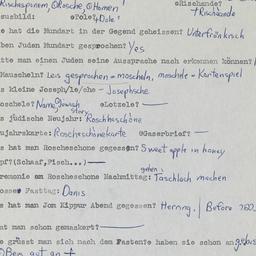 Rischesponem, ⊙Rosche, ⊙Hamen! ⊙Rischende?
eusbild: ⊙Pole? Dole! †Rischende
e hat die Mundart in der Gegend geheissen? Unterfränkisch
ben Juden Mundart gesprochen? Yes
tte man einen Juden seine Aussprache nach erkennen können?
Mauscheln? Les gesprochen - moscheln, moschele - Kartenspiel
s kleine Joseph/le/che - Josephsche
oschele? Name, Jewish story ⊙Lotzele? —
s jüdische Neujahr: Roschhaschöne
ujahrskarte: Roscheschönekarte ⊙Gaserbrief? —
s hat man Roscheschone gegessen? Sweet apple in honey
pf? (Schaaf, Fisch...) —
remonie am Roscheschone Nachmittag: Taschloch gehen, machen
osser Fasttag: Danis
s hat man Jom Kippur Abend gegessen? Herring. | Before
at man schon gemaskert? —
e grüsst man sich nach dem Fasten?
⊙Ben gut an †